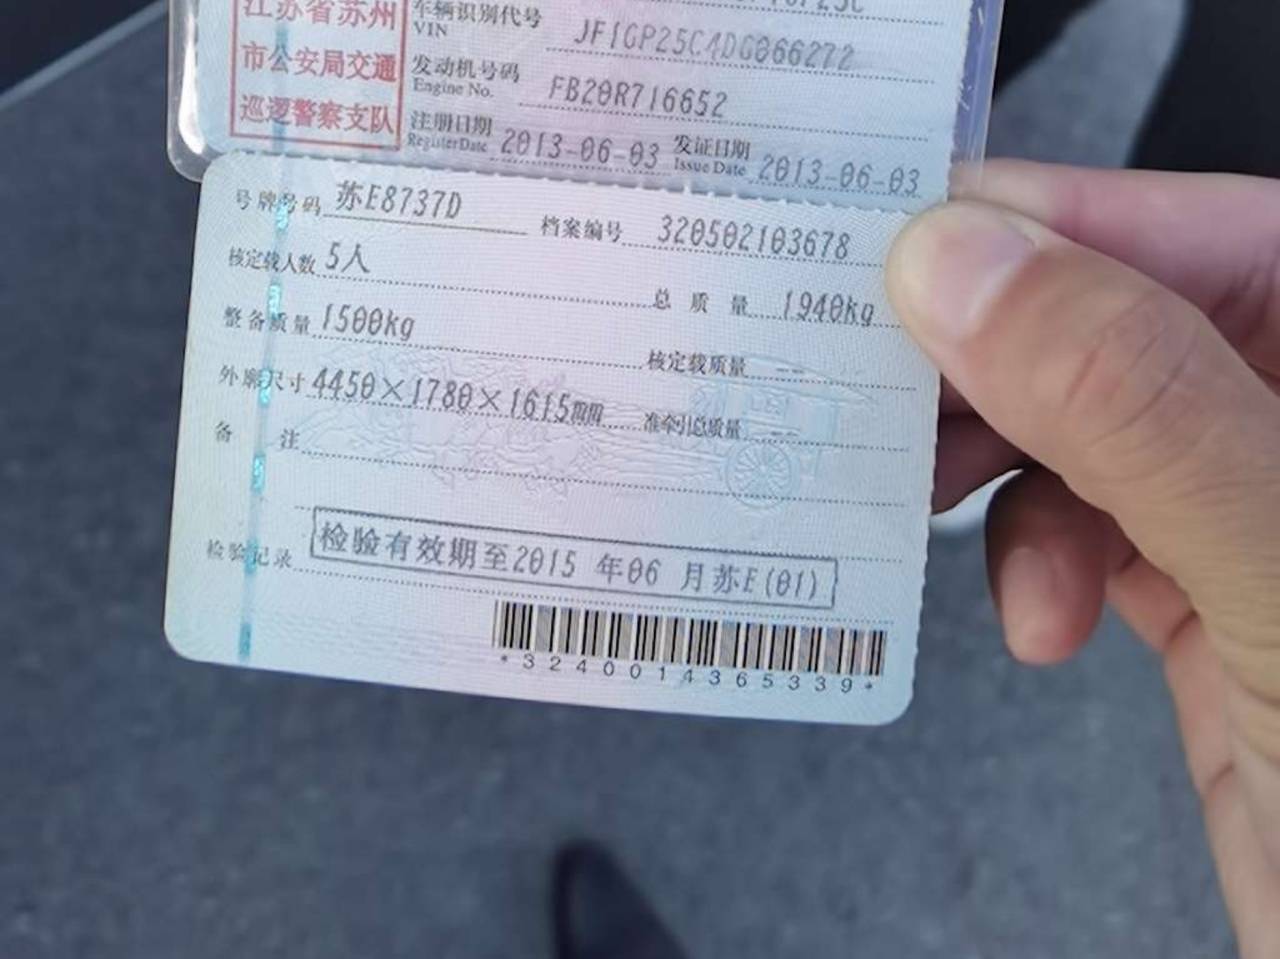 江苏省苏州
市公安局交通
巡逻警察支队
车辆识别代号 VIN JF1GP25C4DG066272
发动机号码 Engine No. FB20R716652
注册日期 Register Date 2013-06-03 发证日期 Issue Date 2013-06-03
号牌号码 苏E8737D 档案编号 320502103678
核定载人数 5人 总质量 1940kg
整备质量 1500kg 核定载质量 --
外廓尺寸 4450×1780×1615mm 准牵引总质量 --
备注
检验记录 检验有效期至2015 年06 月苏E(01)
*3240014365339*